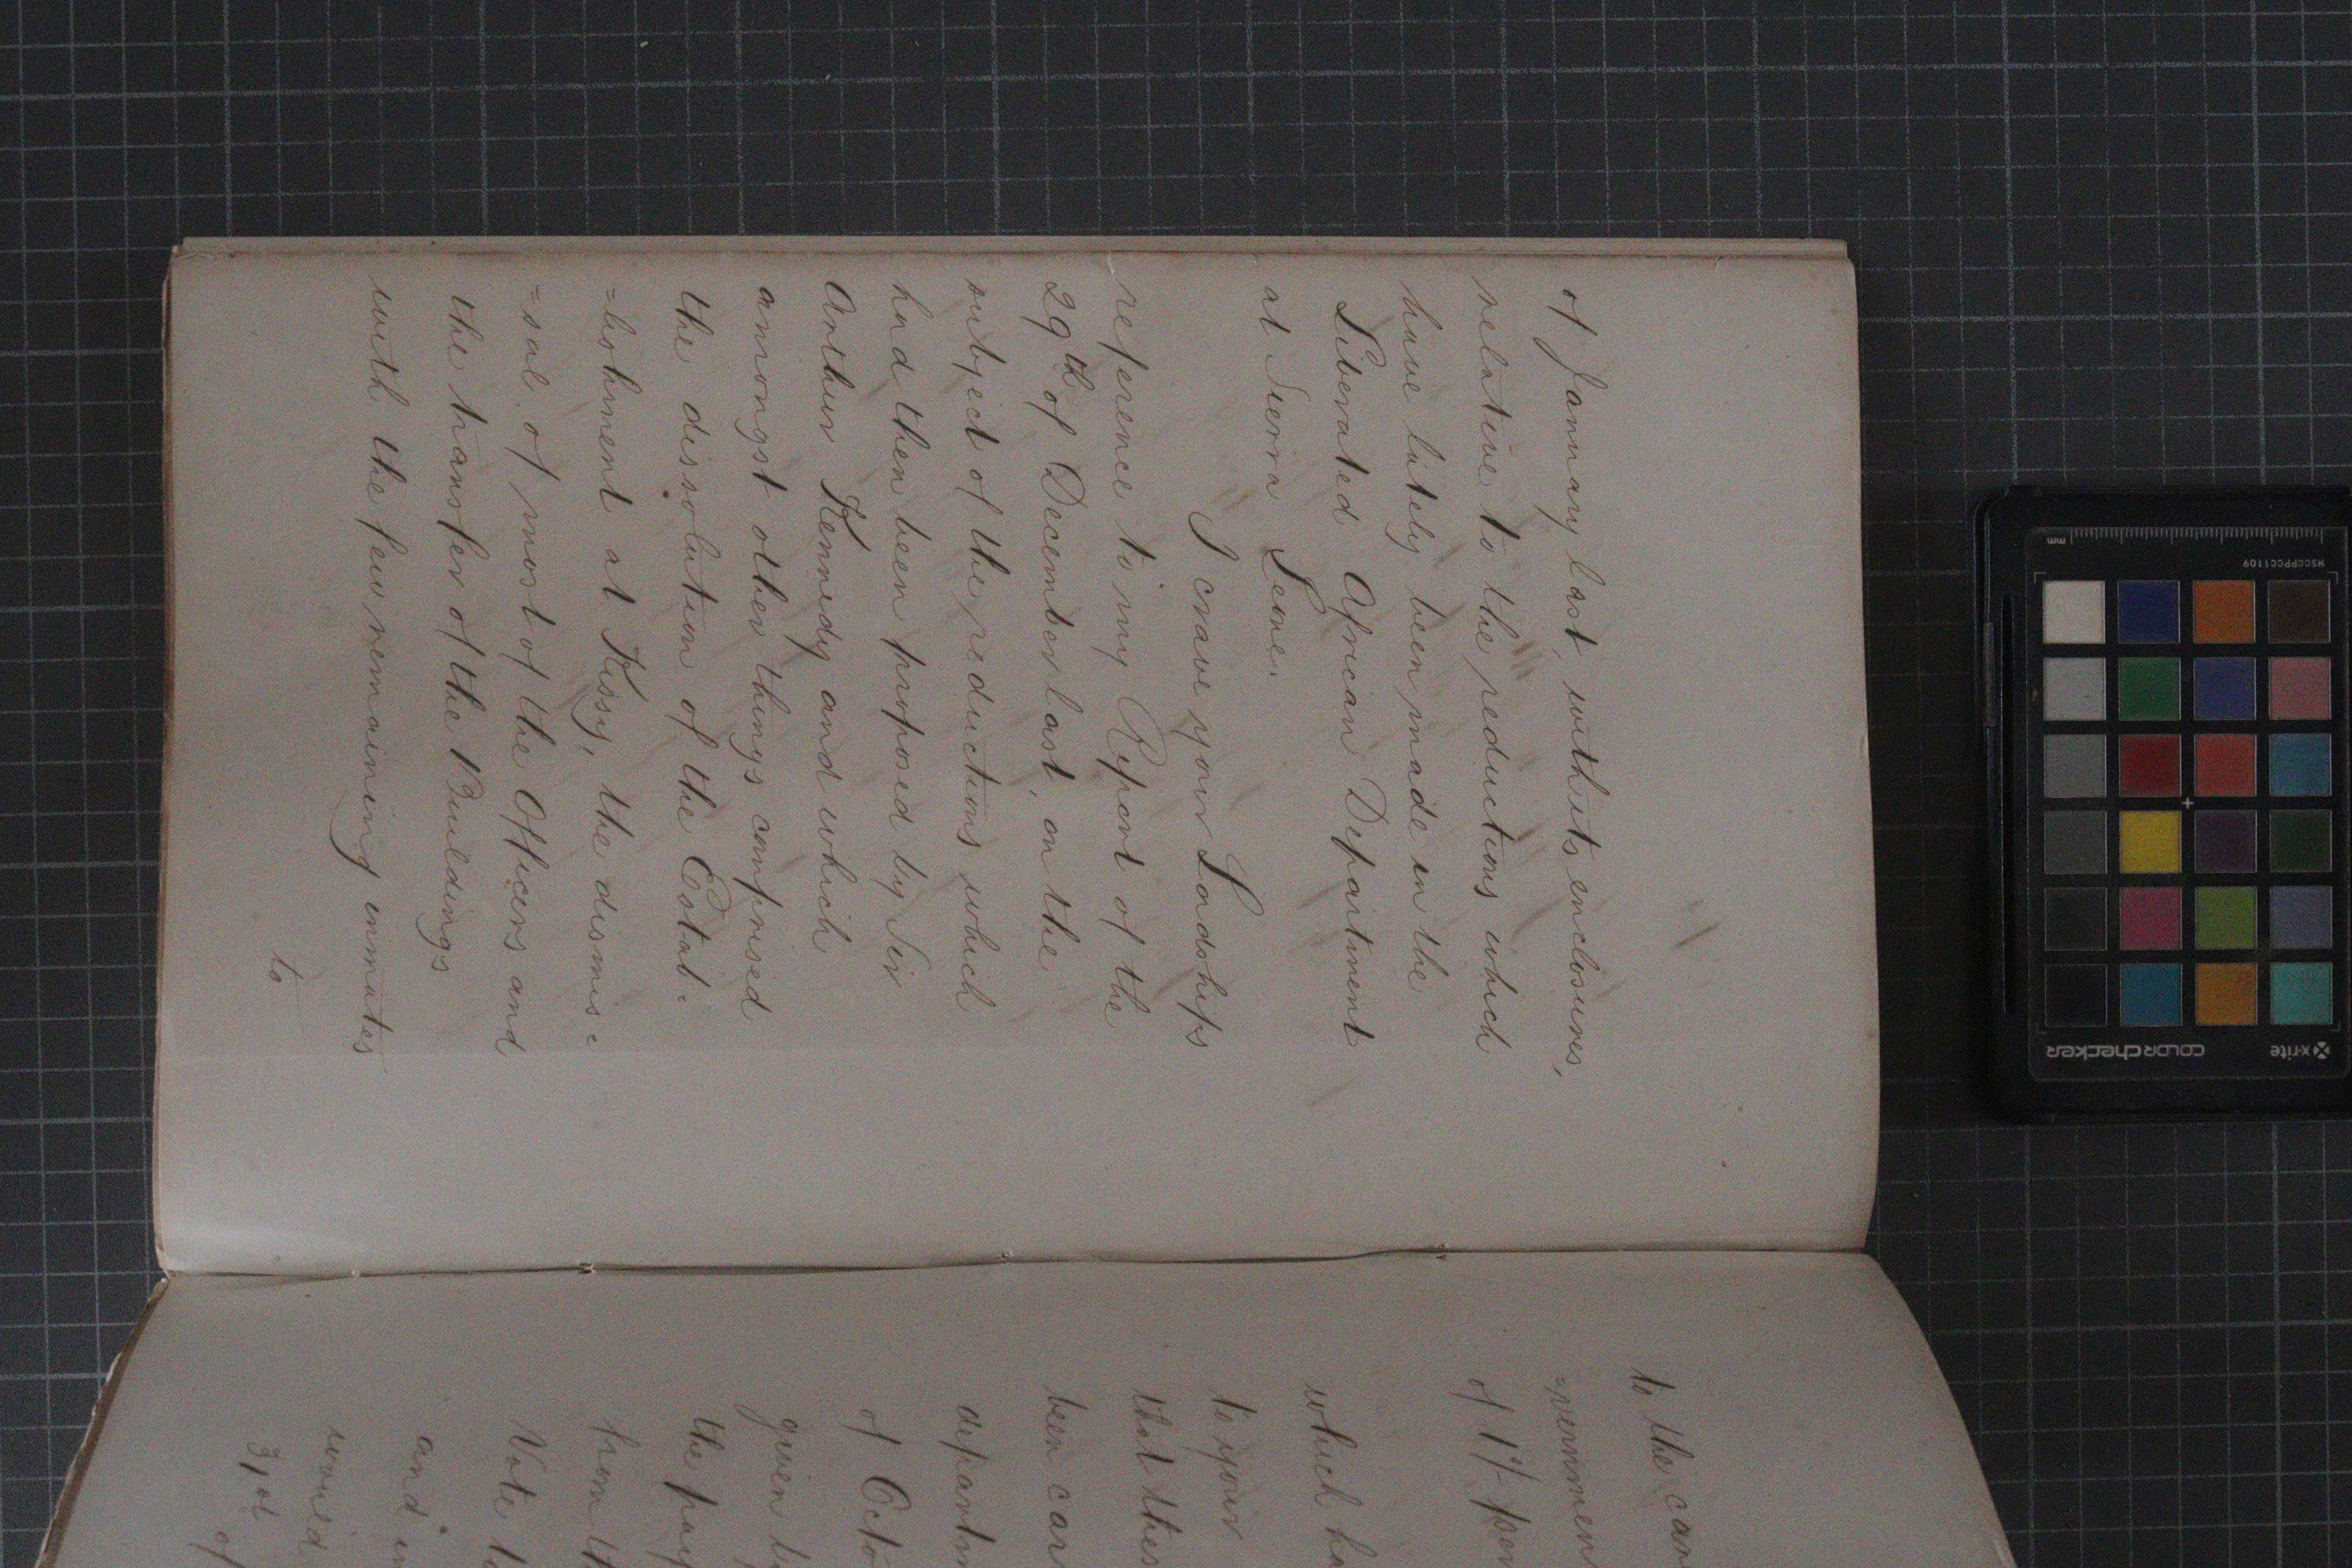 of January last, with its enclosures,
relative to the reductions which
have lately been made in the
Liberated African Department
at Sierra Leone.
I crave your Lordships
reference to my Report of the
29th of December last, on the
subject of the reductions which
had then been proposed by Sir
Arthur Kennedy and which
amongst other things comprised
the dissolution of the Estab:
=lishment at Kissy, the dismis:
=sal of most of the Officers and
the transfer of the Buildings
with the few remaining inmates
to
to the car
=vernmen
of 1/ per
which ha
to your
that thes
been carr
departm
of Octo
given b
the pay
from th
Vote t
and in
would
31st
of
x-rite
colorchecker
MSCCPPCC1109
mm